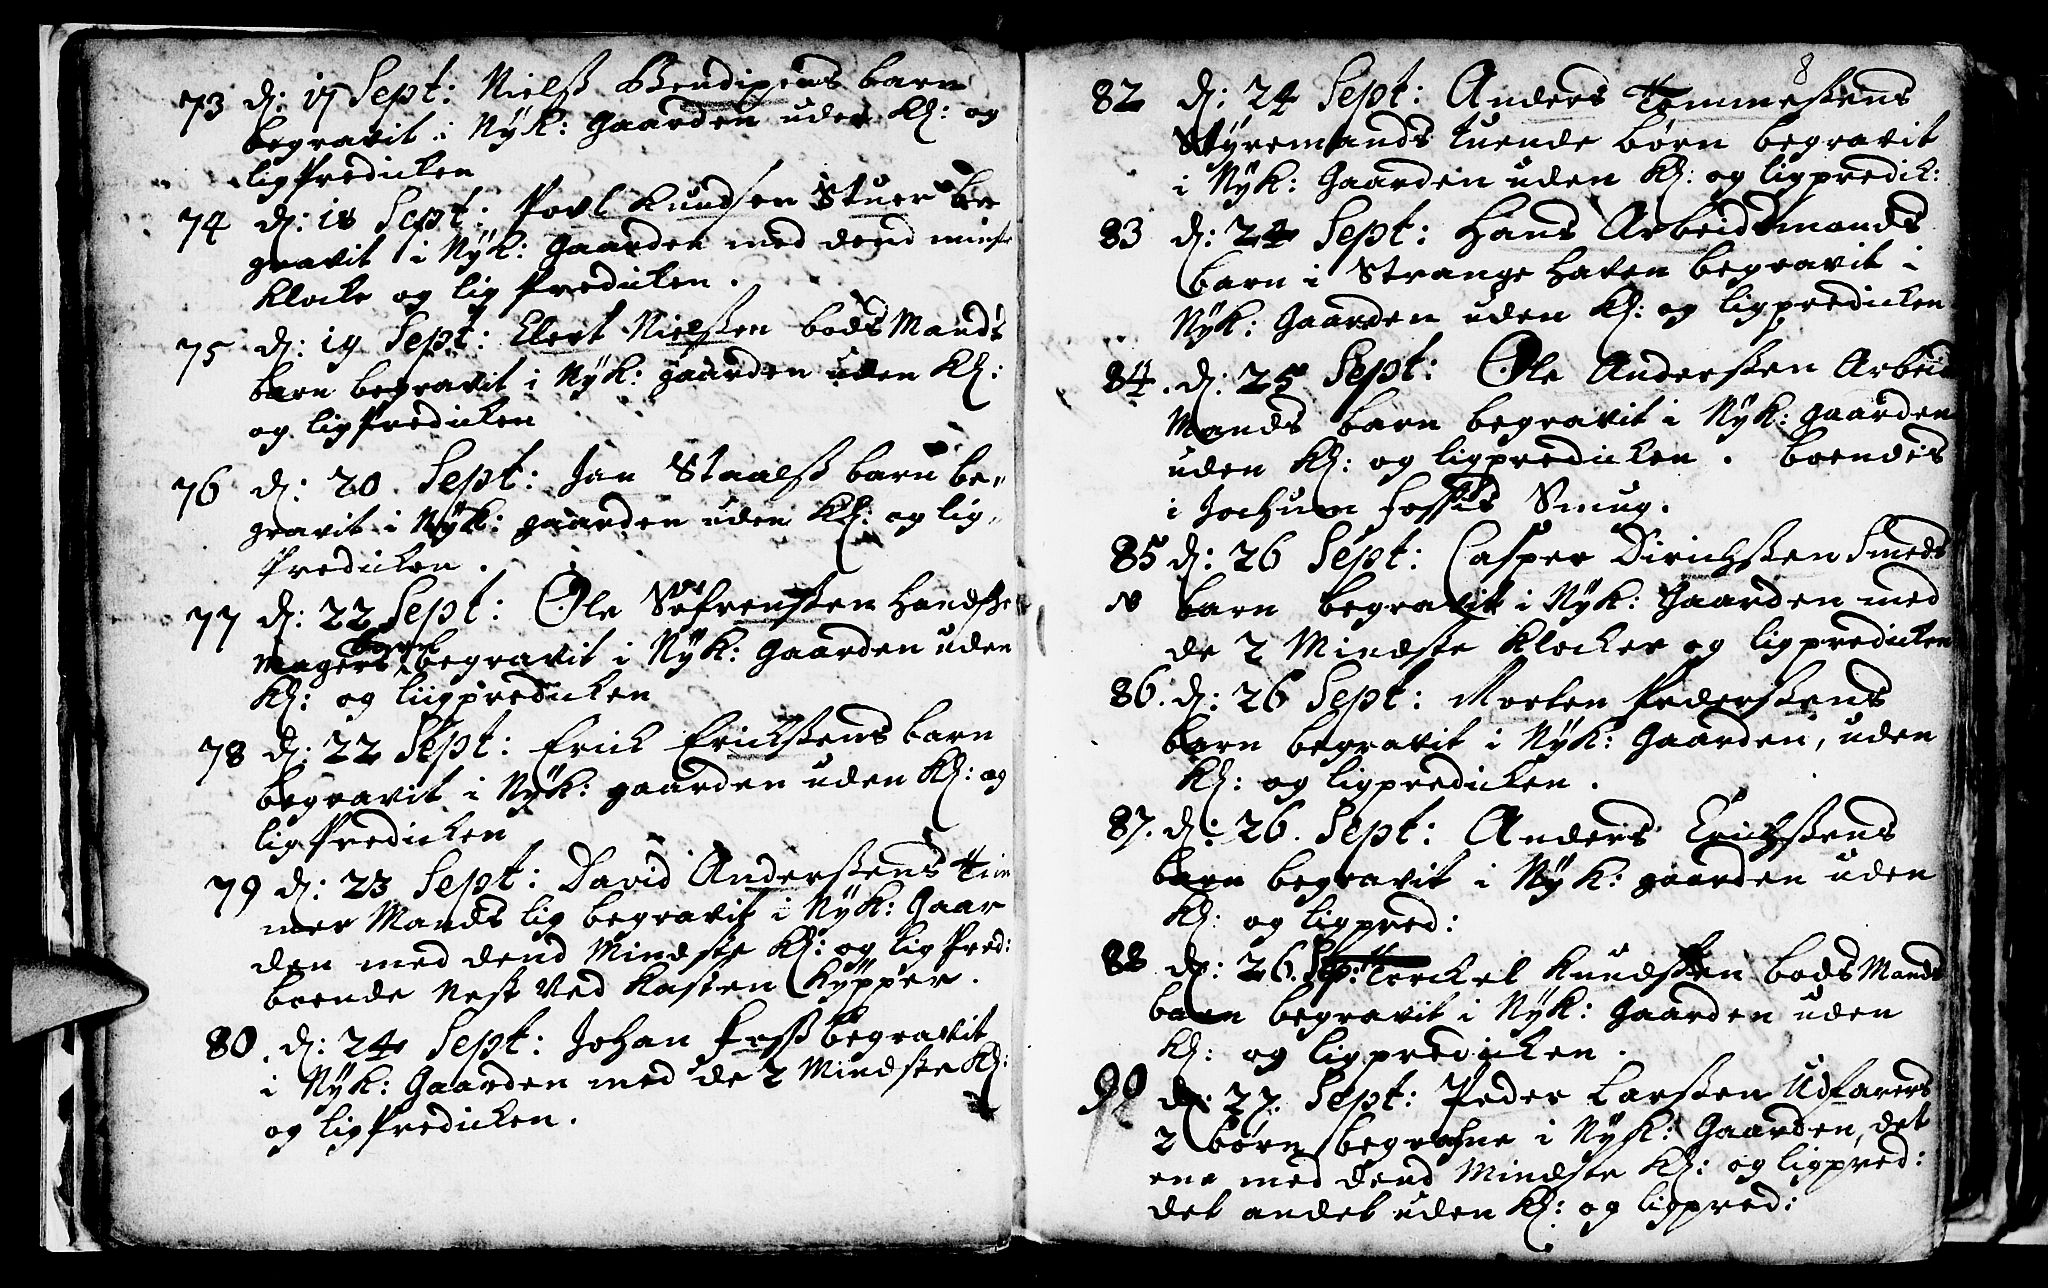 73 d: 17 Sept: Nielß Bendixens barn
begravit i Nyk: Gaarden uden Kl: og
ligPredicken
74 d: 18 Sept: Povl Kundsen Stuer be
gravit i Nÿk: Gaarden med dend minste
Klocke og lig Predicken.
75 d: 19 Sept: Elert Nielßen bodsMands
barn begravit i Nÿk: gaarden uden Kl:
og ligPredicken
76 d: 20 Sept: Jan Staalß barn be„
gravit i Nÿk: gaarden uden Kl: og lig„
Predicken.
77 d: 22 Sept: Ole Sofrenßen Handske
barn
magers begravit i Nÿk: Gaarden uden
Kl: og liigpredicken
78 d: 22 Sept: Erick Erickßens barn
begravit i Nÿk: gaarden uden Kl: og
ligPredicken
79 d: 23 Sept: David Anderßens Tim
mer Mands lig begravit i Nÿk: Gaar
den med dend Mindste Kl: og ligPred:
boende Nest Ved Kasten Kÿpper.
80. d: 24 Sept: Johan Foss begravit
i Nÿk: Gaarden med de 2 Mindste Kl:
og ligPredicken.
8
82 d: 24 Sept: Anders Tømmeßens
Stÿremands tuende børn begravit
i Nÿk: Gaarden uden Kl: og ligpredic:
83 d: 24 Sept: Hans Arbeidsmands
barn i Strange haven begravit i
Nÿk: Gaarden uden Kl: og ligpredicken
84. d: 25 Sept: Ole Anderßen Arbeid
Mands barn begravit i Nÿk: gaarden
uden Kl: og ligpredicken. boendes
i Jochum Fosses Smug.
85 d: 26 Sept: Casper Dirichßen Smeds
N barn begravit i Nÿk: Gaarden med
de 2 Mindste Klocker og ligpredicken
86. d: 26 Sept: Morten Pederßens
barn begravit i Nÿk: Gaarden, uden
Kl: og ligpredicken.
87. d: 26. Sept: Anders Erichßens
barn begravit i Nÿk: gaarden uden
Kl: og ligpred:
88 d: 26. Sep: Torckel Knudßen bodsMands
barn begravit i Nÿk: Gaarden uden
Kl: og ligpredicken.
90 d: 27. Sept: Peder Larßen Udfarers
2 børn begrafne i Nÿk: Gaarden, det
ene med dend Mindste Kl: og ligpred:
det andet uden Kl: og ligpred: